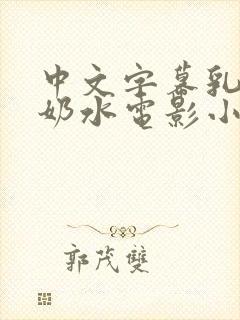 中文字幕乳
奶水电影小
郭茂雙